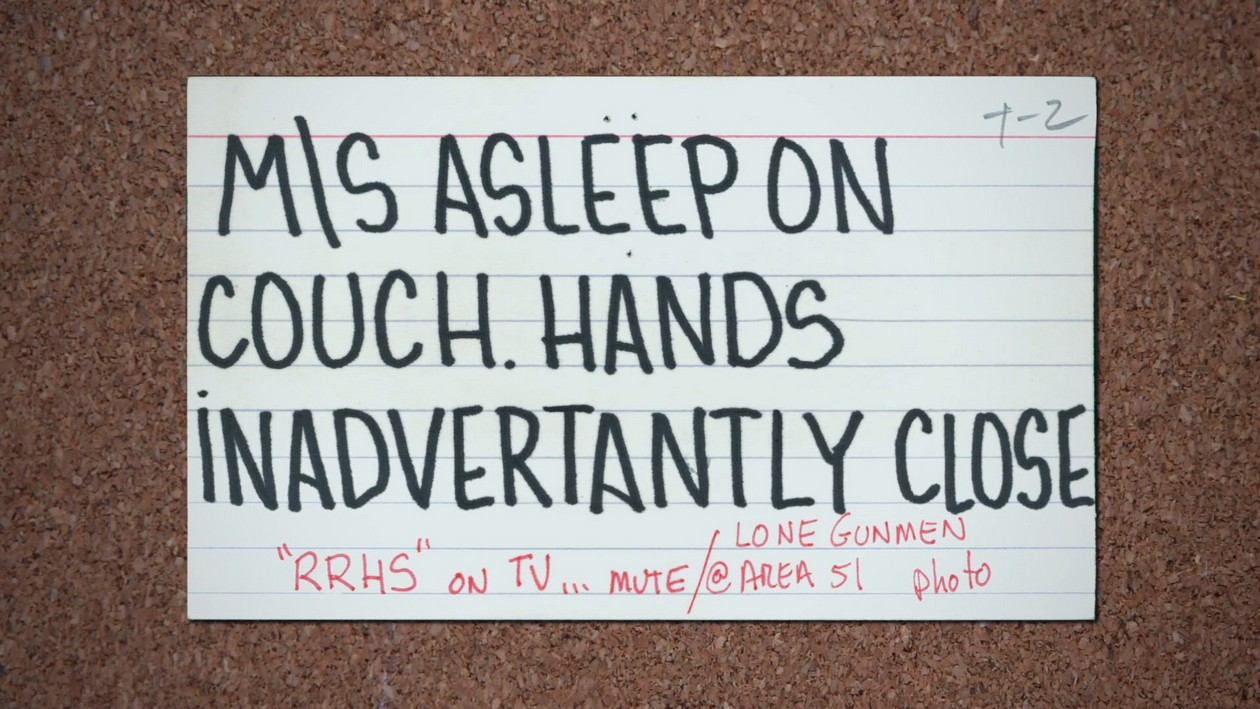 T-2
M\S ASLEEP ON
COUCH. HANDS
INADVERTANTLY CLOSE
LONE GUNMEN
"RRHS" ON TV... MUTE/@ AREA 51 photo